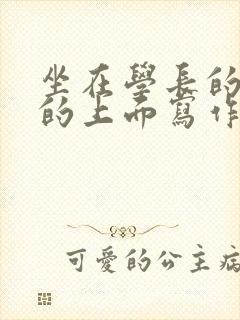 坐在學長的
的上而寫作
可愛的公主病